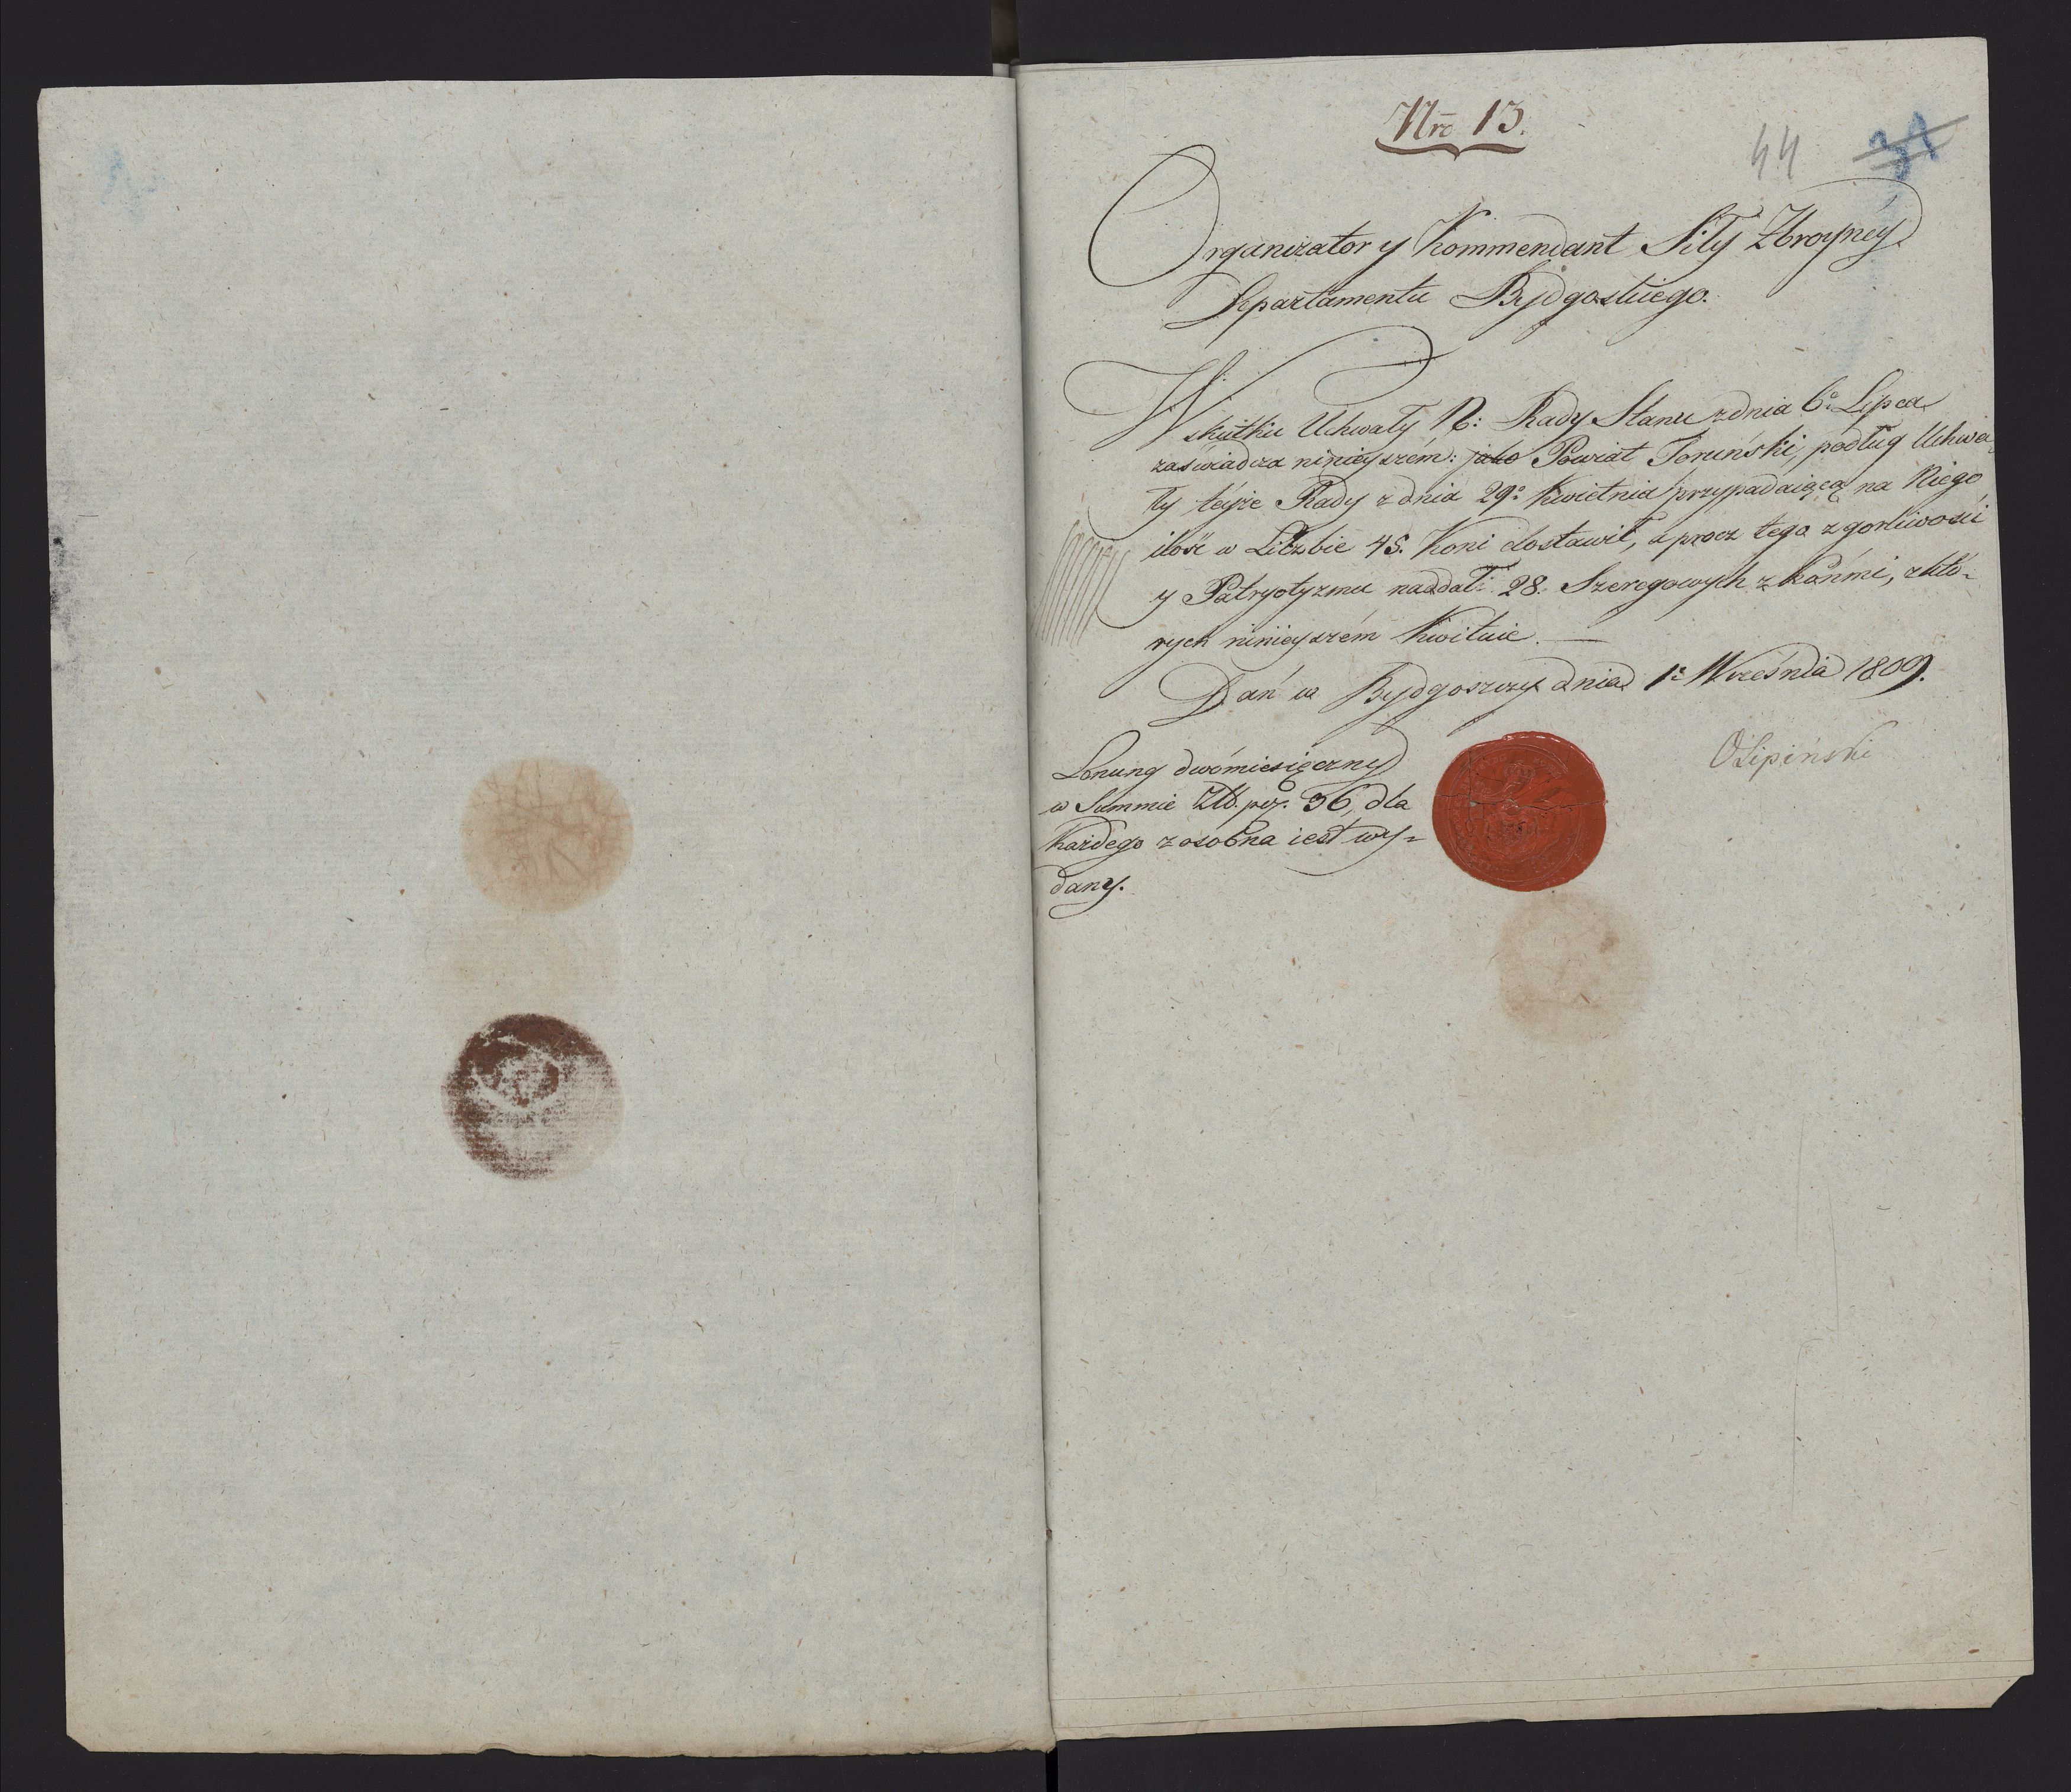 Nro 13.
44
Organizator y Kommendant Siły Zbroyney
Departamentu Bydgoskiego.
W skutku Uchwały N: Rady Stanu z dnia 6o Lipca
zaświadcza ninieyszém: jako Powiat Toruński, podług Uchwa-
ły teyże Rady z dnia 29o Kwietnia przypadaiącą na Niego
ilość w Liczbie 45. Koni dostawił, a procz tego z gorliwości
y Patryotyzmu naddał: 28. Szeregowych z końmi, z któ-
rych ninieyszém Kwituie. —
Dań w Bydgoszczy dnia 1o Września 1809.
OLipiński
Lonung dwómiesięczny
w Summie Zło. pol. 36, dla
Każdego z osobna iest wy=
dany.